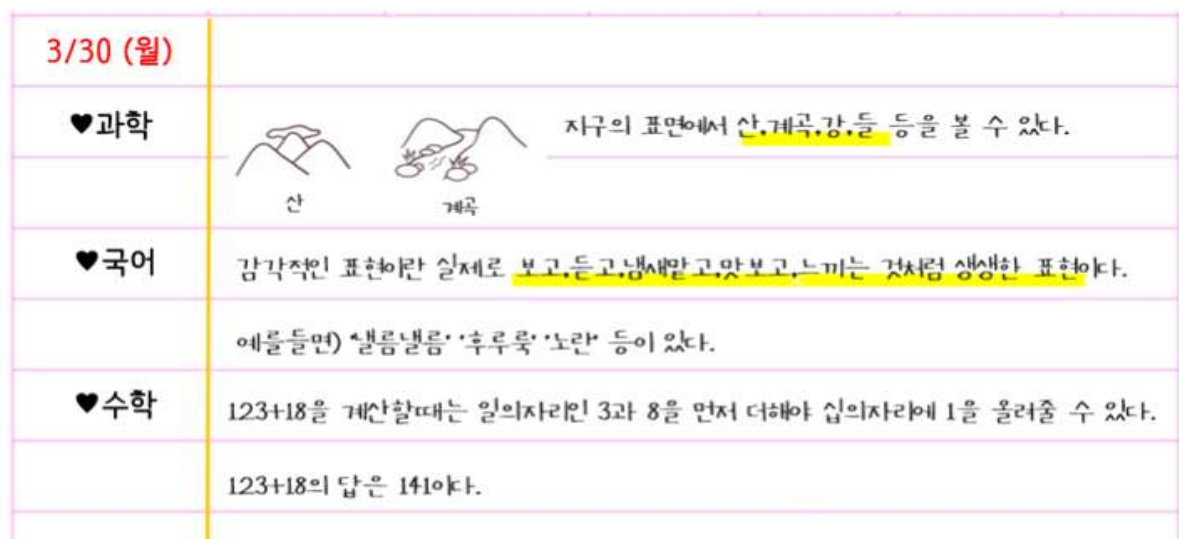 3/30 (월)
♥과학
지구의 표면에서 산,계곡,강,들 등을 볼 수 있다.
산
계곡
♥국어
감각적인 표현이란 실제로 보고,듣고,냄새맡고,맛보고,느끼는 것처럼 생생한 표현이다.
예를들면) '낼름낼름' '후루룩' '노란' 등이 있다.
♥수학
123+18을 계산할때는 일의자리인 3과 8을 먼저 더해야 십의자리에 1을 올려줄 수 있다.
123+18의 답은 141이다.